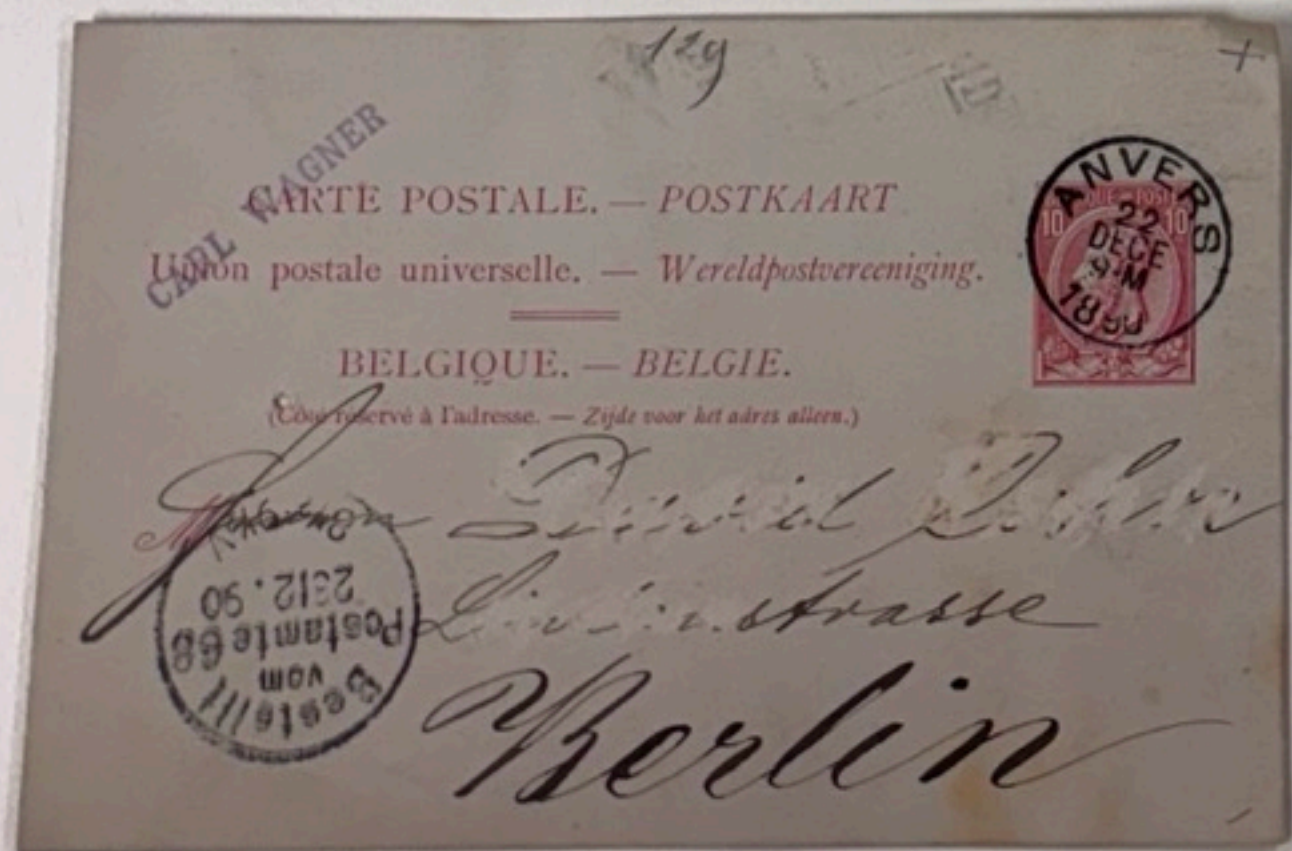 129
CARL WAGNER
CARTE POSTALE. — POSTKAART
Union postale universelle. — Wereldpostvereeniging.
BELGIQUE. — BELGIE.
(Côté réservé à l'adresse. — Zijde voor het adres alleen.)
10 10
ANVERS
22
DECE
9-M
1890
M
David
strasse
Berlin
Bestellt
vom
Postamte 68
2312.90